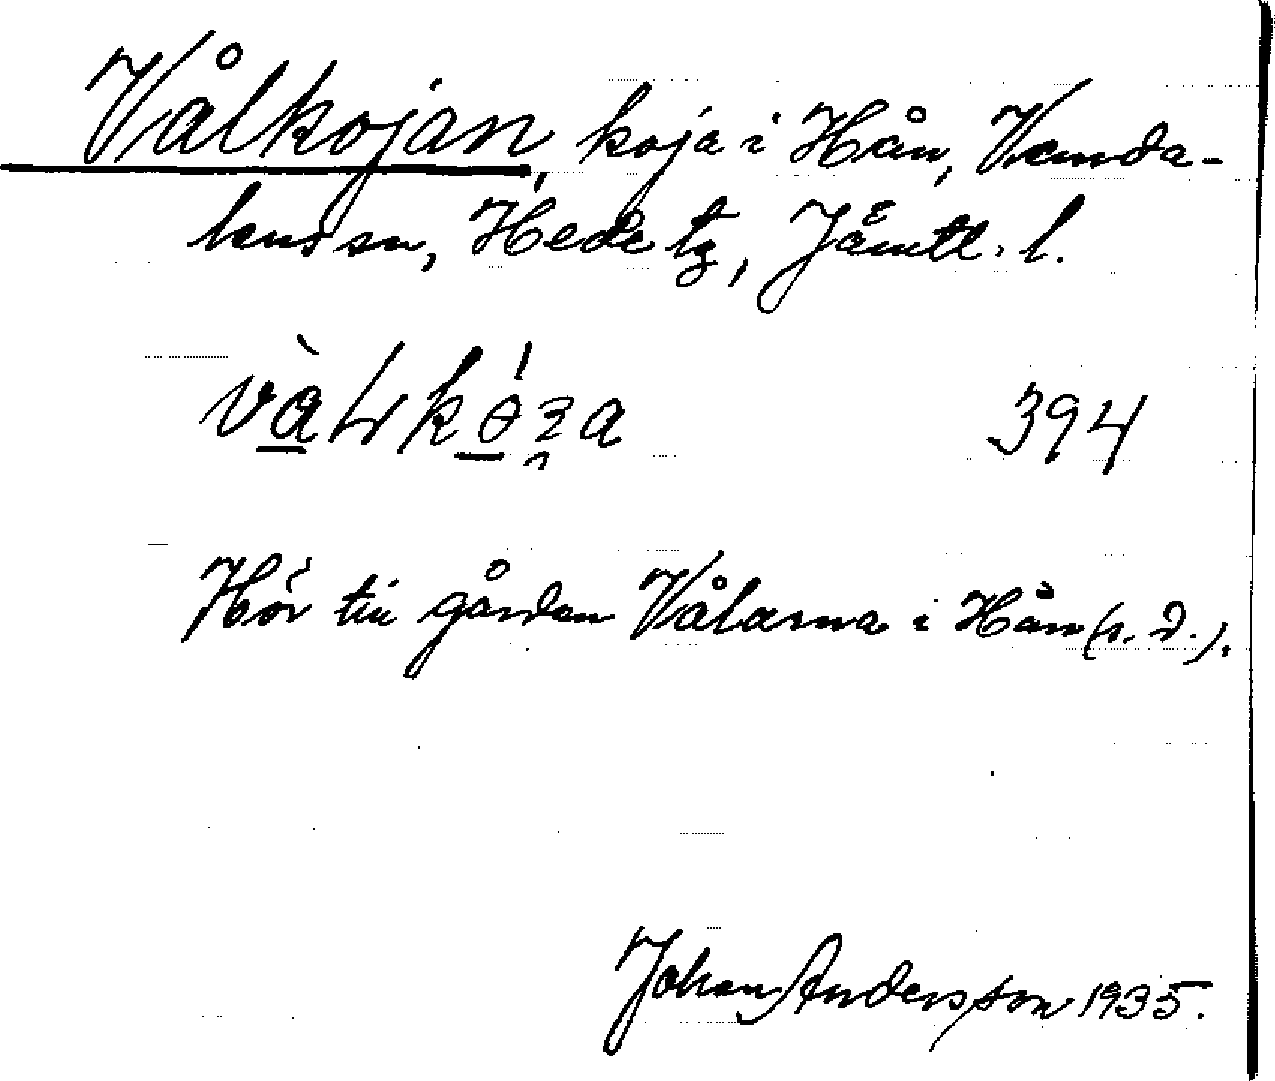 Vålkojan, koja i Hån, Vemda-
lens sn, Hede tg, Jämtl. l.
394
Hör till gården Vålarna i Hån (s. d.).
Johan Andersson 1935.